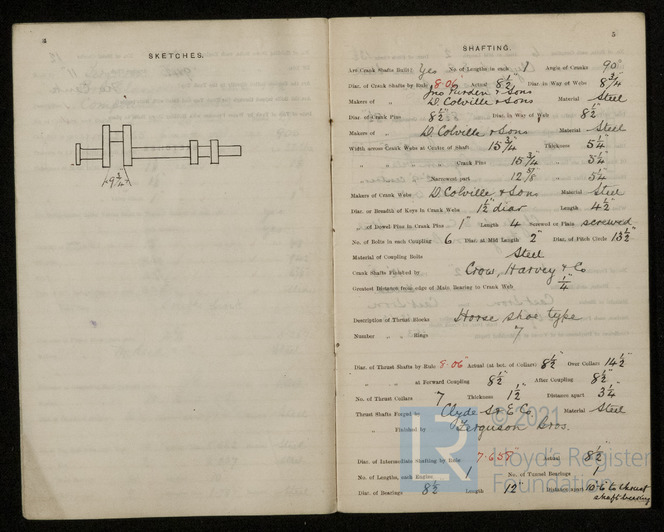 4
SKETCHES.
9 3/4"
5
SHAFTING.
Are Crank Shafts Built? Yes No. of Lengths in each 1 Angle of Cranks 90°
Diar. of Crank Shafts by Rule 8.06 Actual 8 1/2" Diar. in Way of Webs 8 3/4"
Jno Purden & Sons
Makers of „ D. Colville & Sons Material Steel
Diar. of Crank Pins 8 1/2" Diar. in Way of Webs 8 1/2"
Makers of „ D. Colville & Sons Material Steel
Width across Crank Webs at Centre of Shaft 15 3/4" Thickness 5 1/4"
„ „ Crank Pins 15 3/4" „ 5 1/4"
„ „ Narrowest part 12 5/8" „ 5 1/4"
Makers of Crank Webs D. Colville & Sons Material Steel
Diar. or Breadth of Keys in Crank Webs 1 1/2" diar Length 4 1/2"
„ of Dowel Pins in Crank Pins 1" Length 4 Screwed or Plain screwed
No. of Bolts in each Coupling 6 Diar. at Mid Length 2" Diar. of Pitch Circle 13 1/2"
Material of Coupling Bolts Steel
Crank Shafts Finished by Crow, Harvey & Co
Greatest Distance from edge of Main Bearing to Crank Web 1/4"
Description of Thrust Blocks Horse shoe type
Number „ Rings 7
Diar. of Thrust Shafts by Rule 8.06 Actual (at bot. of Collars) 8 1/2" Over Collars 14 1/2"
„ „ at Forward Coupling 8 1/2" After Coupling 8 1/2"
No. of Thrust Collars 7 Thickness 1 1/2" Distance apart 3 1/4"
Thrust Shafts Forged by Clyde S. & E Co Material Steel
„ Finished by Ferguson Bros.
Diar. of Intermediate Shafting by Rule Actual 8 1/2"
No. of Lengths, each Engine 1 No. of Tunnel Bearings 1
Diar. of Bearings 8 1/2 Length 12" Distance apart 10'-6" to thrust
shaft bearing
LR
© 2021
Lloyd's Register
Foundation